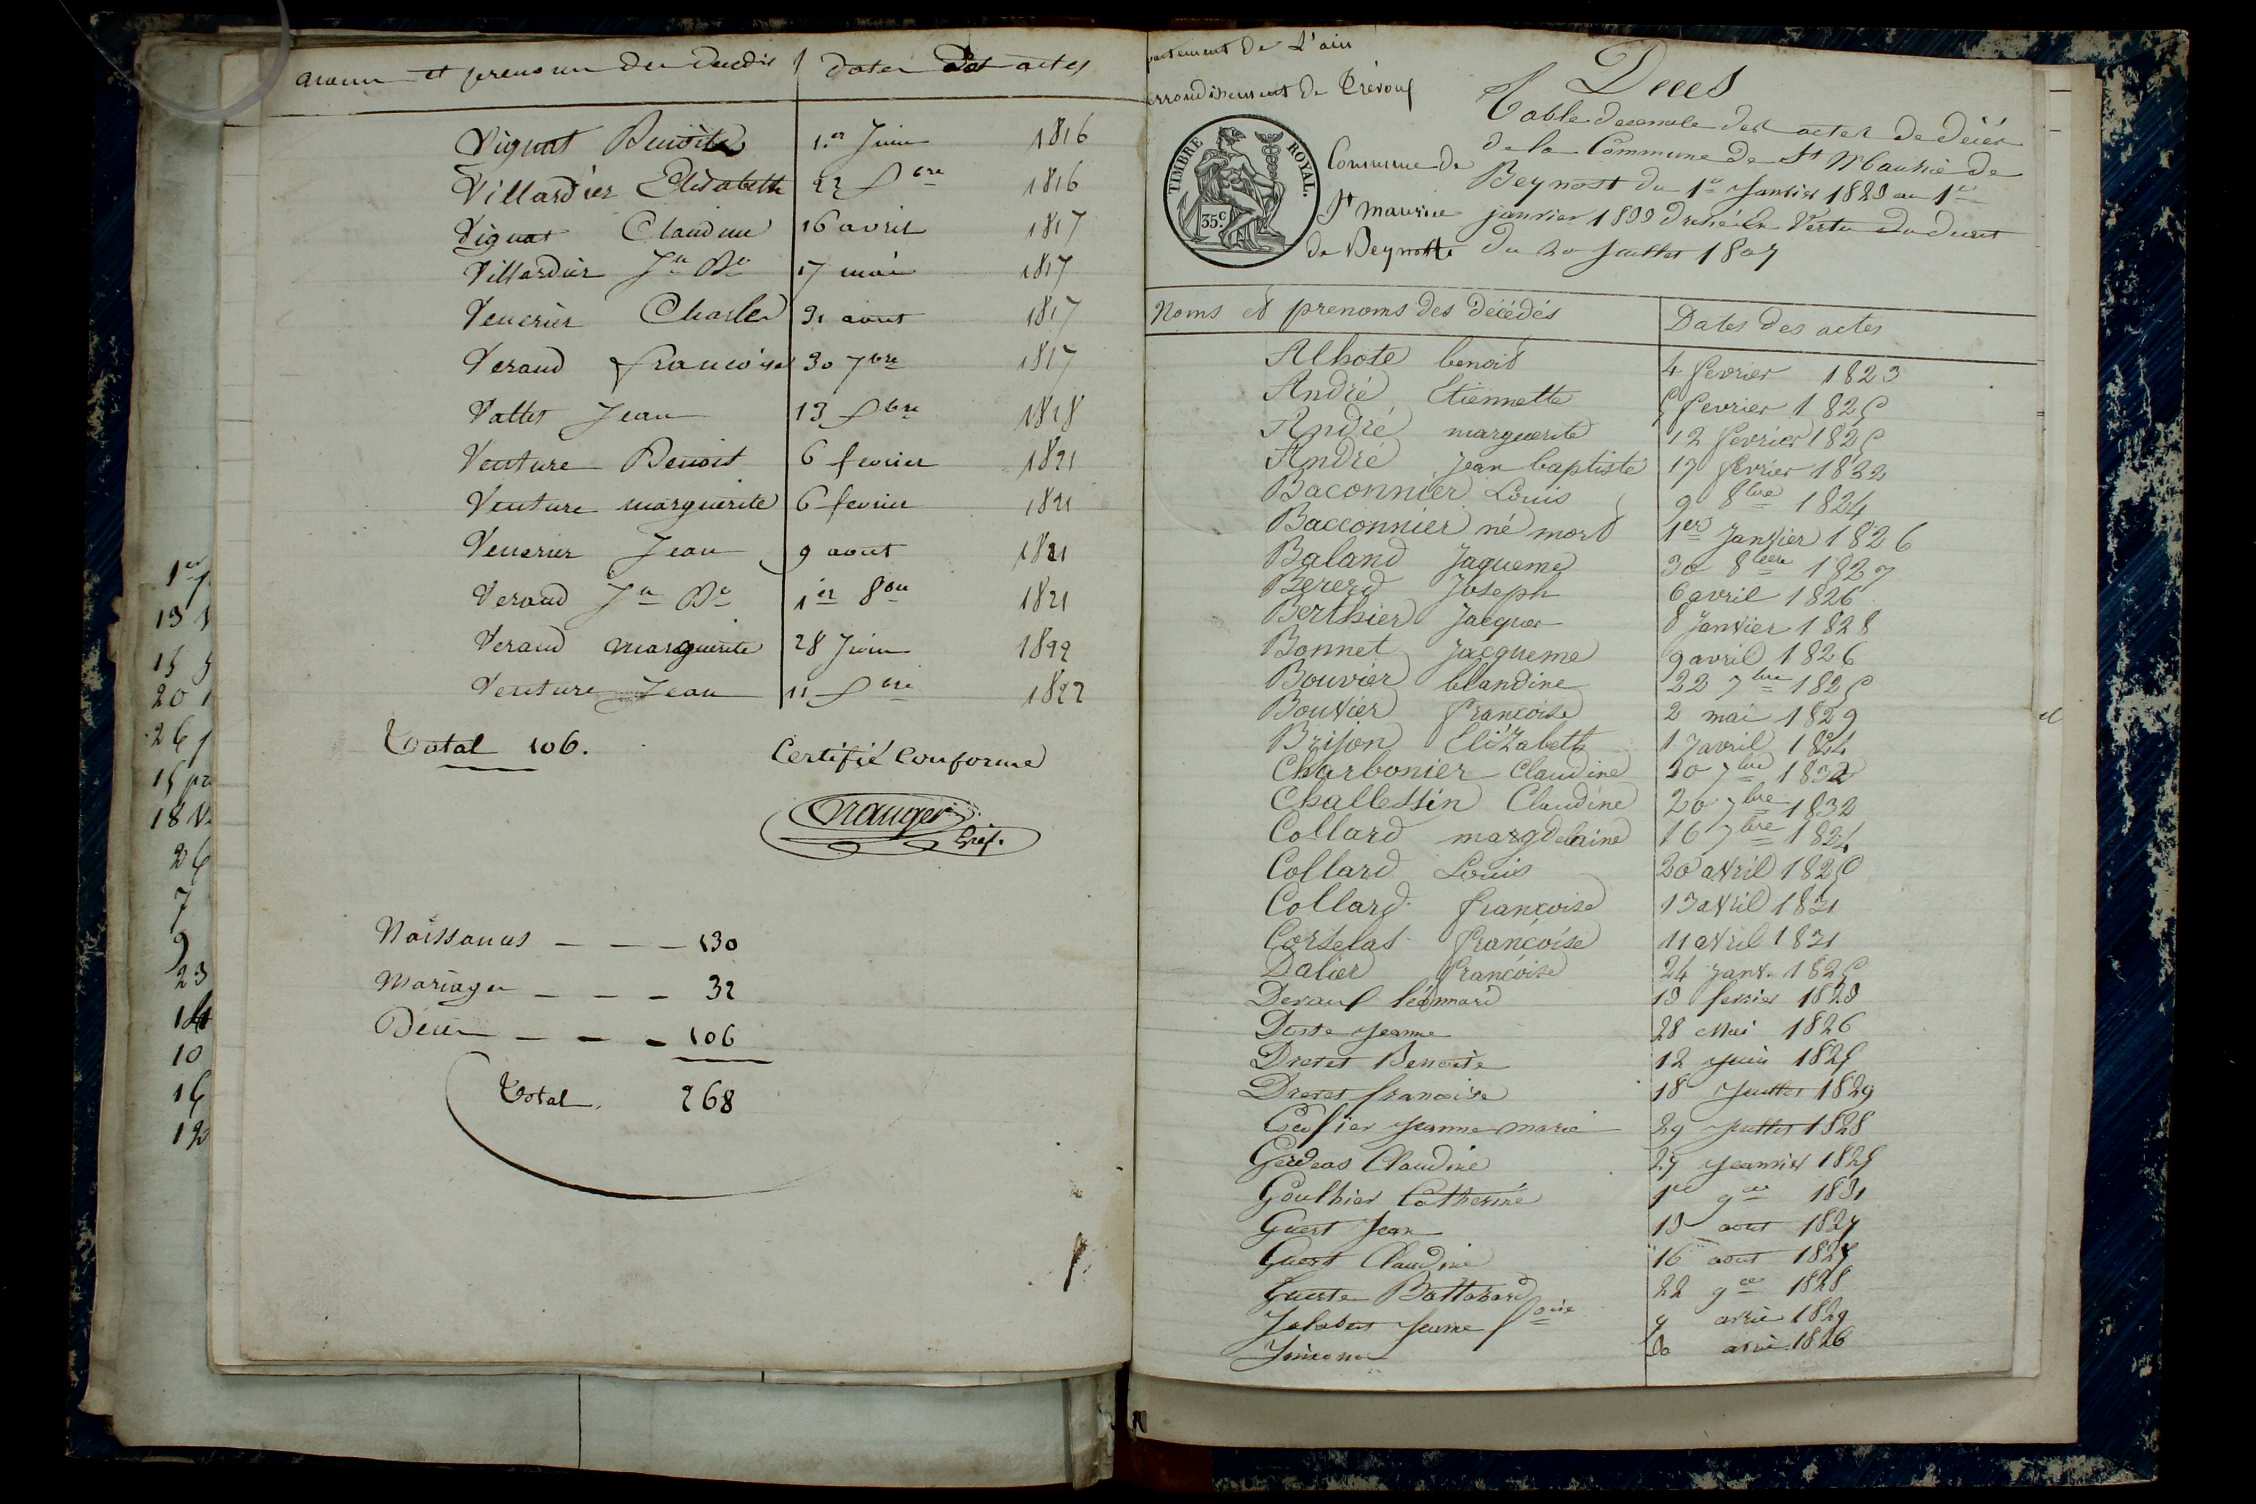 noms et prenoms des decedés dates des actes
Vignat Benoite 1er Juin 1816
Villardier Elisabeth 22 8bre 1816
Vignat Claudine 16 avril 1817
Villardier Jn Bte 17 mai 1817
Venerier Charles 31 aout 1817
Veraud francoise 30 7bre 1817
Vallet Jean 13 8bre 1818
Venture Benoit 6 fevrier 1821
Venture marguerite 6 fevrier 1821
Venerier Jean 9 aout 1821
Veraud Jn Bte 1er 8bre 1821
Veraud marguerite 28 Juin 1822
Venture Jean 11 8bre 1822
Total 106.
Certifié Conforme
Granger
Gref.
Naissances — — — 130
Mariages — — — 32
Décès — — — 106
Total. 268
partement de L'ain
rrondissement de Trévoux
TIMBRE ROYAL.
35c
Commune de
St maurice
de Beynost
Décès
Table decenale des actes de décès
de la Commune de St Maurice de
Beynost du 1er Janvier 1823 au 1er
janvier 1833 dressé En Vertu du decret
du 20 Juillet 1807
Noms et prenoms des décédés Dates des actes
Alhote benoit 4 fevrier 1823
André Etiennette 5 fevrier 1825
André marguerite 12 fevrier 1825
André jean baptiste 17 fevrier 1832
Baconnier Louis 9 8bre 1824
Bacconnier né mort 1er Janvier 1826
Baland Jaqueme 30 8bre 1827
Bererd Joseph 6 avril 1826
Berthier Jacques 8 Janvier 1828
Bonnet Jacqueme 9 avril 1826
Bouvier blandine 22 7bre 1825
Bouvier francoise 2 mai 1829
Brison Elizabeth 17 avril 1824
Charbonier Claudine 20 7bre 1832
Challessin Claudine 20 7bre 1832
Collard margdelaine 16 7bre 1824
Collard Louis 20 avril 1825
Collard françoise 13 avril 1831
Corselas françoise 11 avril 1831
Dalier françoise 24 janv. 1825
léonnard 13 fevrier 1823
Doste jeanne 28 Mai 1826
Dretet Benoite 12 juin 1825
Dretet francoise 18 Juillet 1829
jeanne marie 29 juillet 1828
Claudine 27 jeanvier 1825
Gouthier Catherine 1er 9bre 1831
Guert Jean 13 aout 1827
Guert Claudine 16 aout 1827
Guerte 22 9bre 1828
jeanne 1829
1826